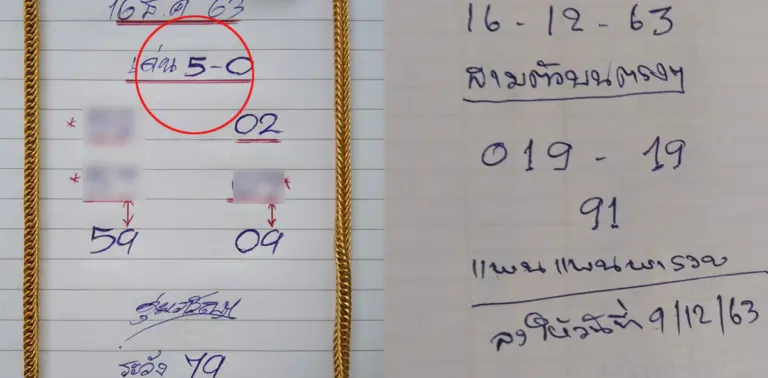 16 ธ.ค 63
เด่น 5-0
* 02
* *
59 09
ระวัง 79
16 - 12 - 63
สามตัวบนตรงๆ
019 - 19
91
แพนแพนพารวย
ลงให้วันที่ 9/12/63